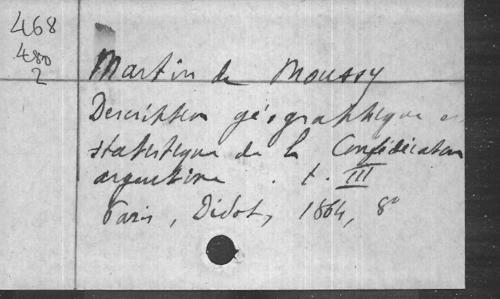 468
480
2
Martin de Moussy
Description géographique et
statistique de la Confédération
argentine . t. III
Paris, Didot, 1864, 8°